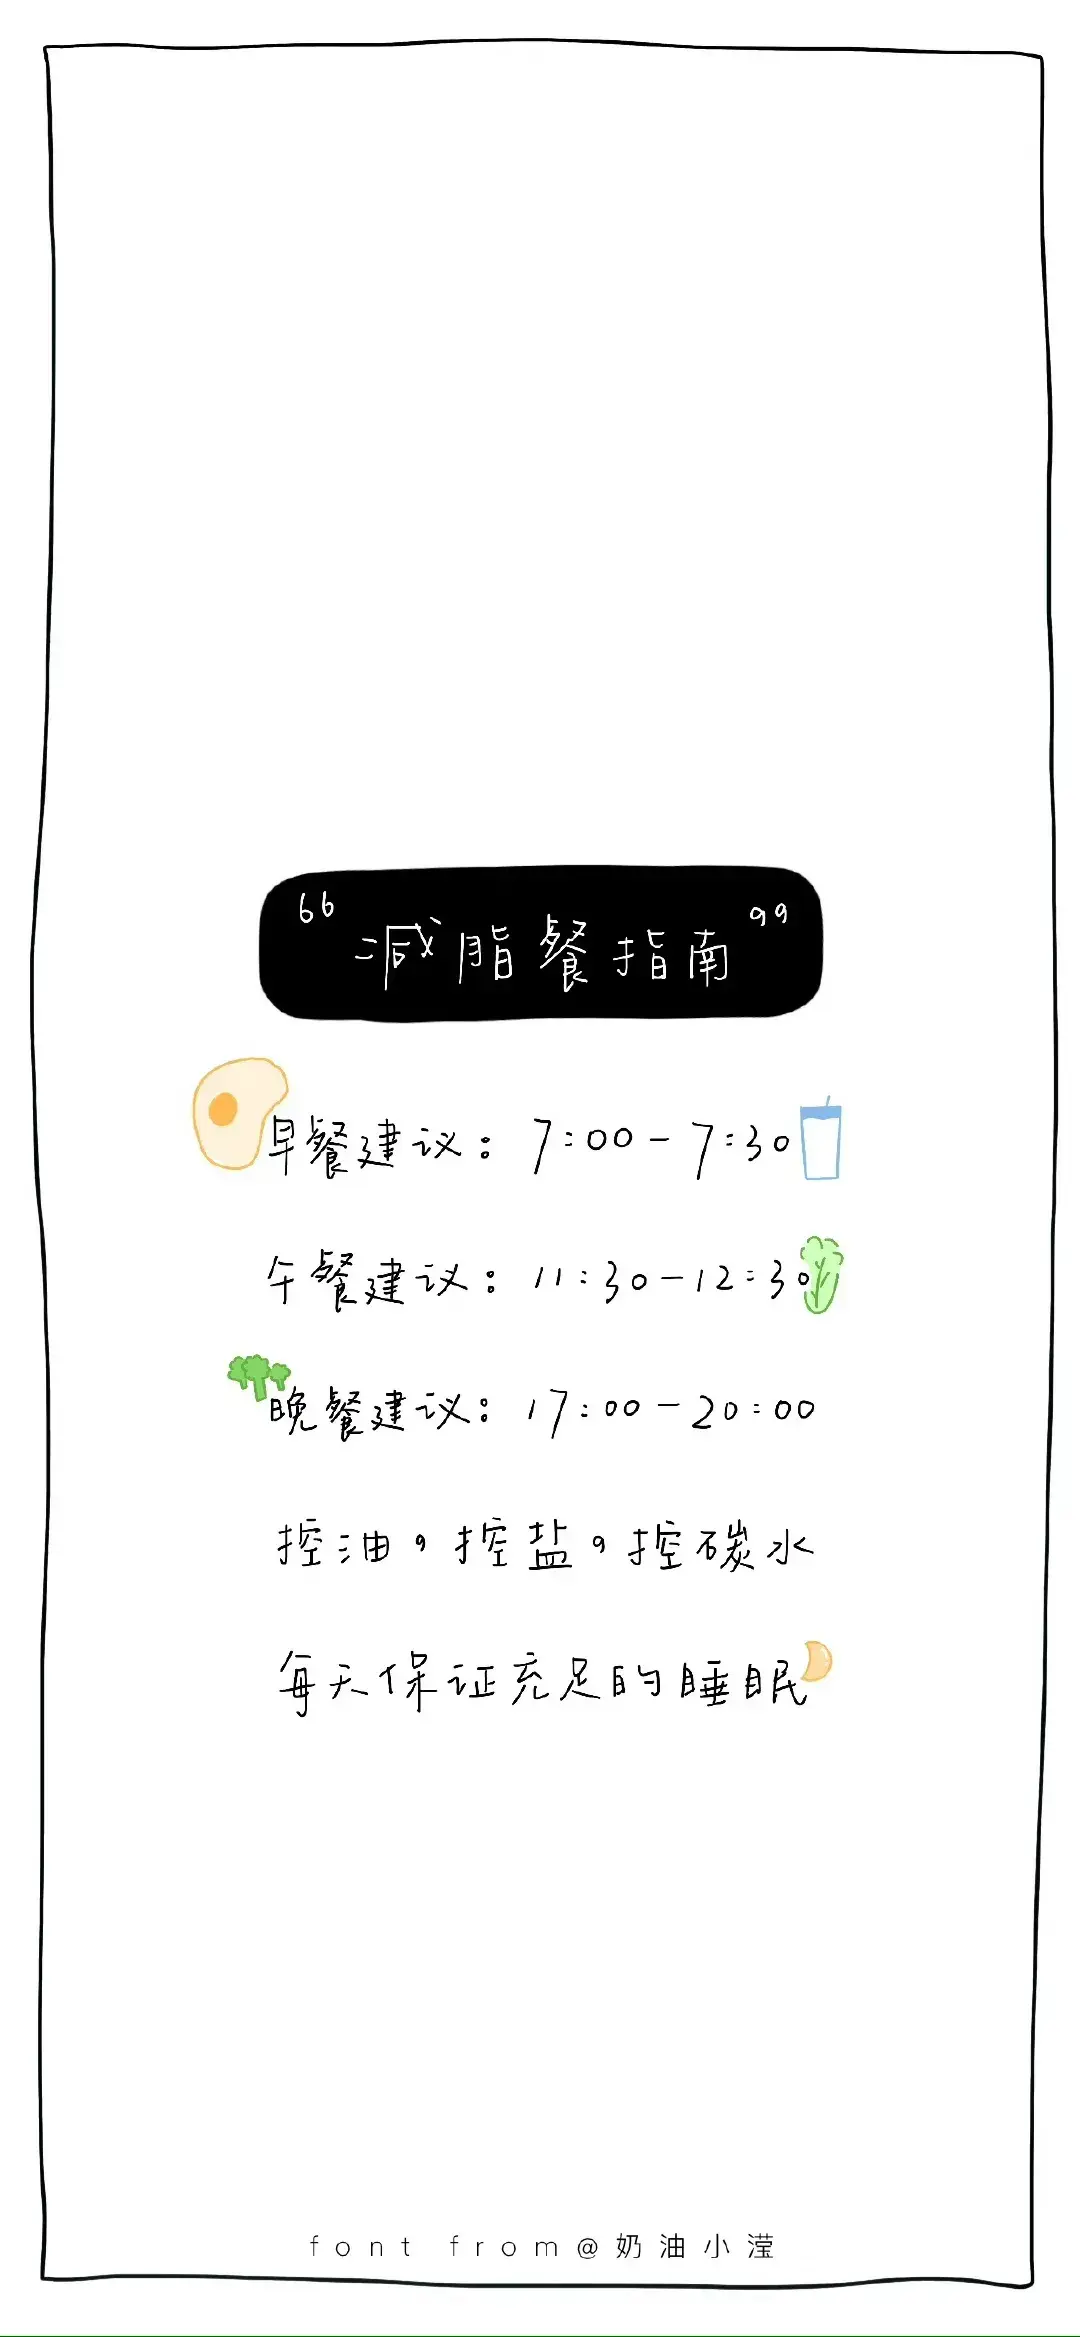 “减脂餐指南”
早餐建议：7:00-7:30
午餐建议：11:30-12:30
晚餐建议：17:00-20:00
控油，控盐，控碳水
每天保证充足的睡眠
font from@奶油小滢